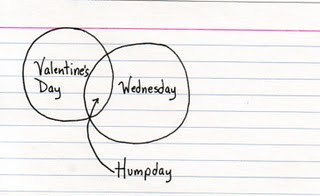 Valentine's
Day
Wednesday
Humpday